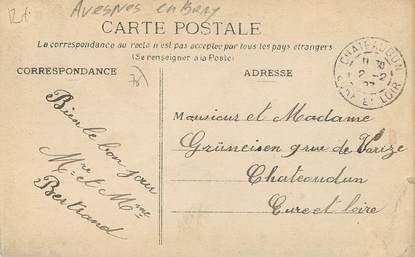 Avesnes en Bray
CARTE POSTALE
La correspondance au recto n'est pas acceptée par tous les pays étrangers
(Se renseigner à la Poste)
CORRESPONDANCE
ADRESSE
CHATEAUDUN
EURE ET LOIR
Bien le bon jour
Mr et Mme
Bertrand
Monsieur et Madame
Grüneisen rue de Varize
Chateaudun
Eure et loire